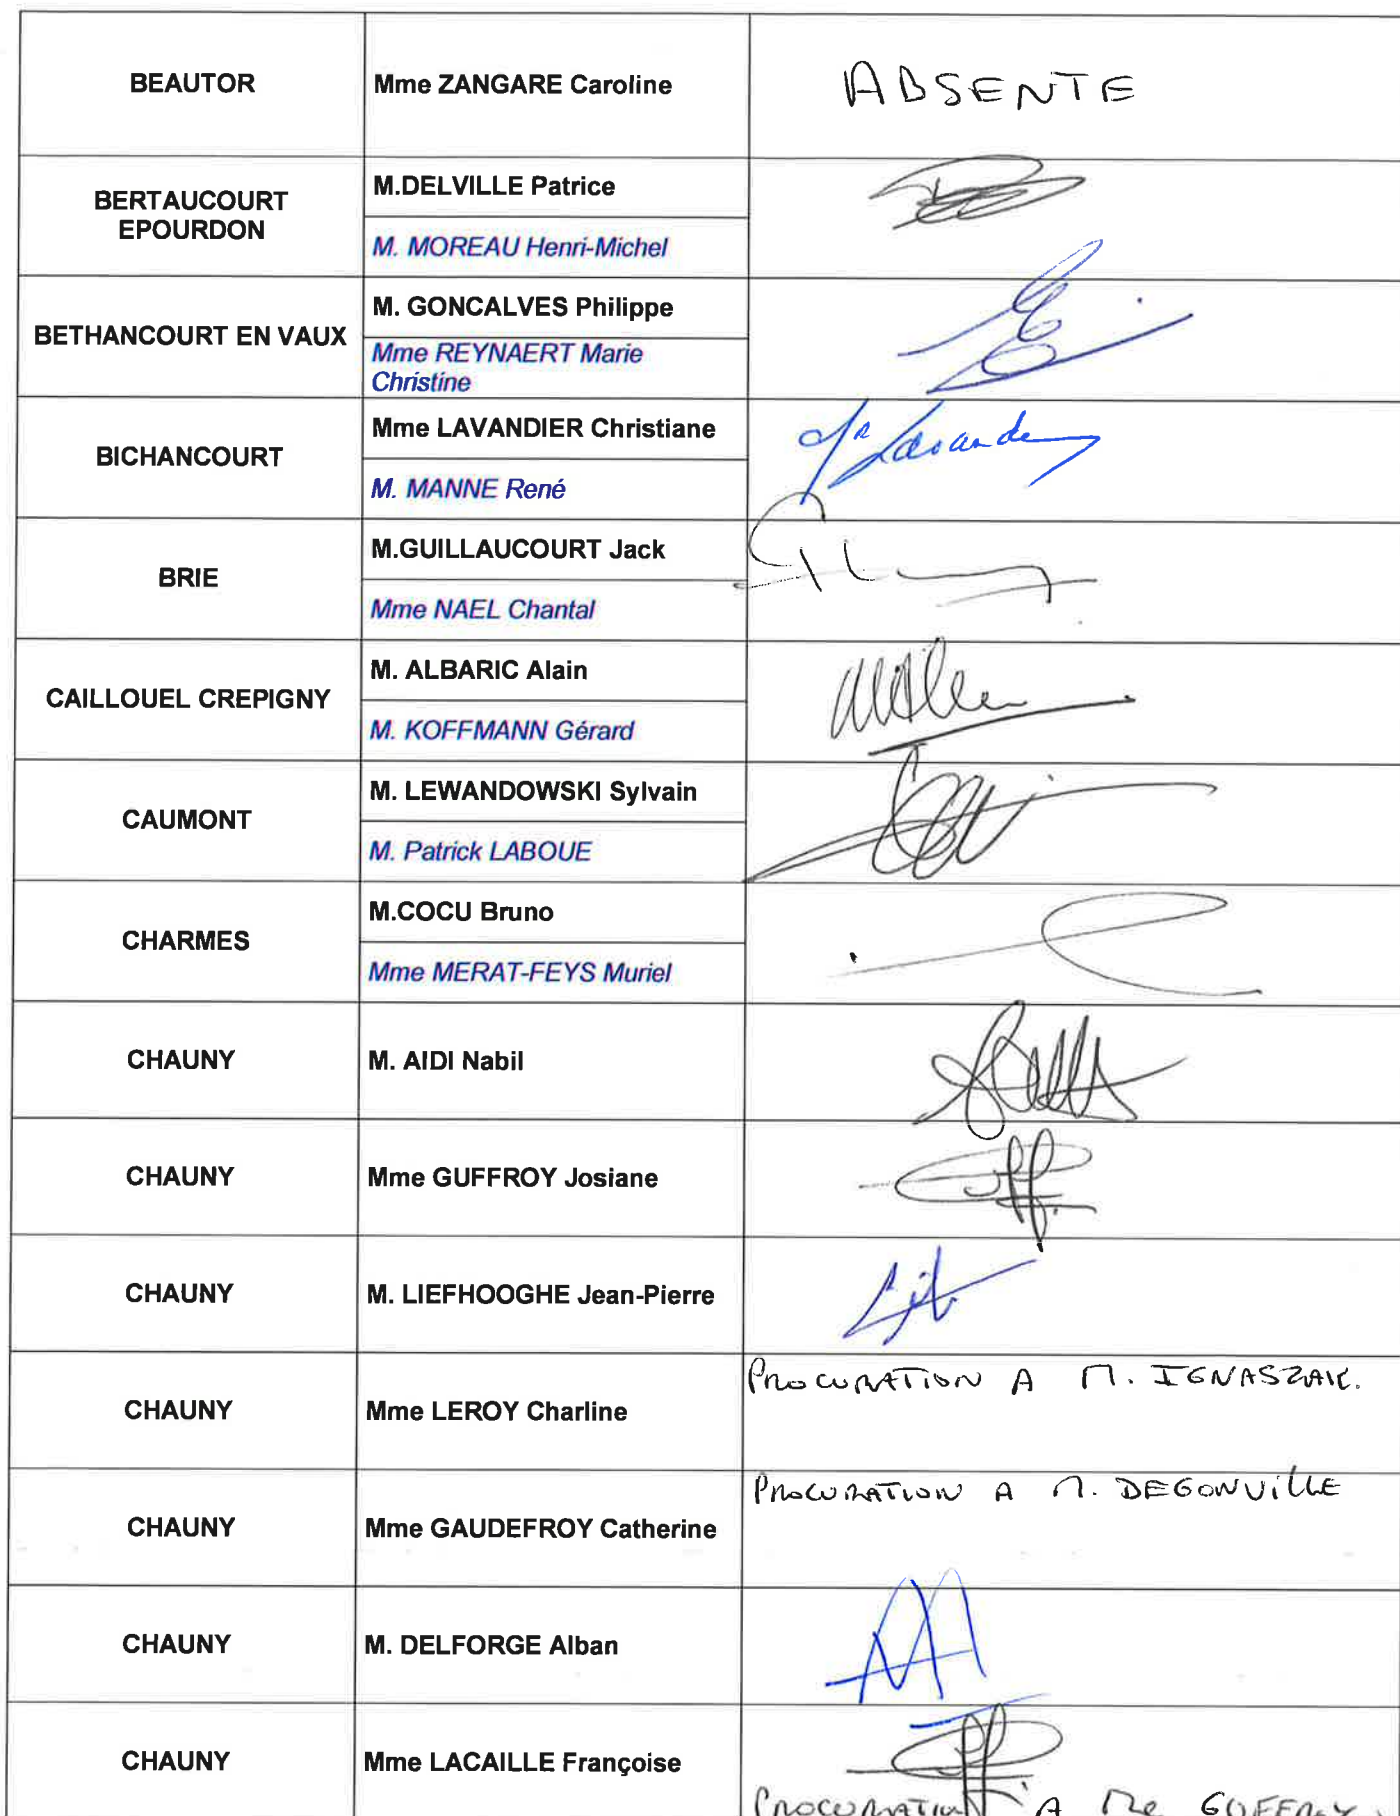 BEAUTOR
Mme ZANGARE Caroline
ABSENTE
BERTAUCOURT
EPOURDON
M.DELVILLE Patrice
M. MOREAU Henri-Michel
BETHANCOURT EN VAUX
M. GONCALVES Philippe
Mme REYNAERT Marie
Christine
BICHANCOURT
Mme LAVANDIER Christiane
M. MANNE René
BRIE
M.GUILLAUCOURT Jack
Mme NAEL Chantal
CAILLOUEL CREPIGNY
M. ALBARIC Alain
M. KOFFMANN Gérard
CAUMONT
M. LEWANDOWSKI Sylvain
M. Patrick LABOUE
CHARMES
M.COCU Bruno
Mme MERAT-FEYS Muriel
CHAUNY
M. AIDI Nabil
CHAUNY
Mme GUFFROY Josiane
CHAUNY
M. LIEFHOOGHE Jean-Pierre
CHAUNY
Mme LEROY Charline
PROCURATION A M. IGNASZAK.
CHAUNY
Mme GAUDEFROY Catherine
PROCURATION A M. DEGONVILLE
CHAUNY
M. DELFORGE Alban
CHAUNY
Mme LACAILLE Françoise
PROCURATION A Me GUFFROY.